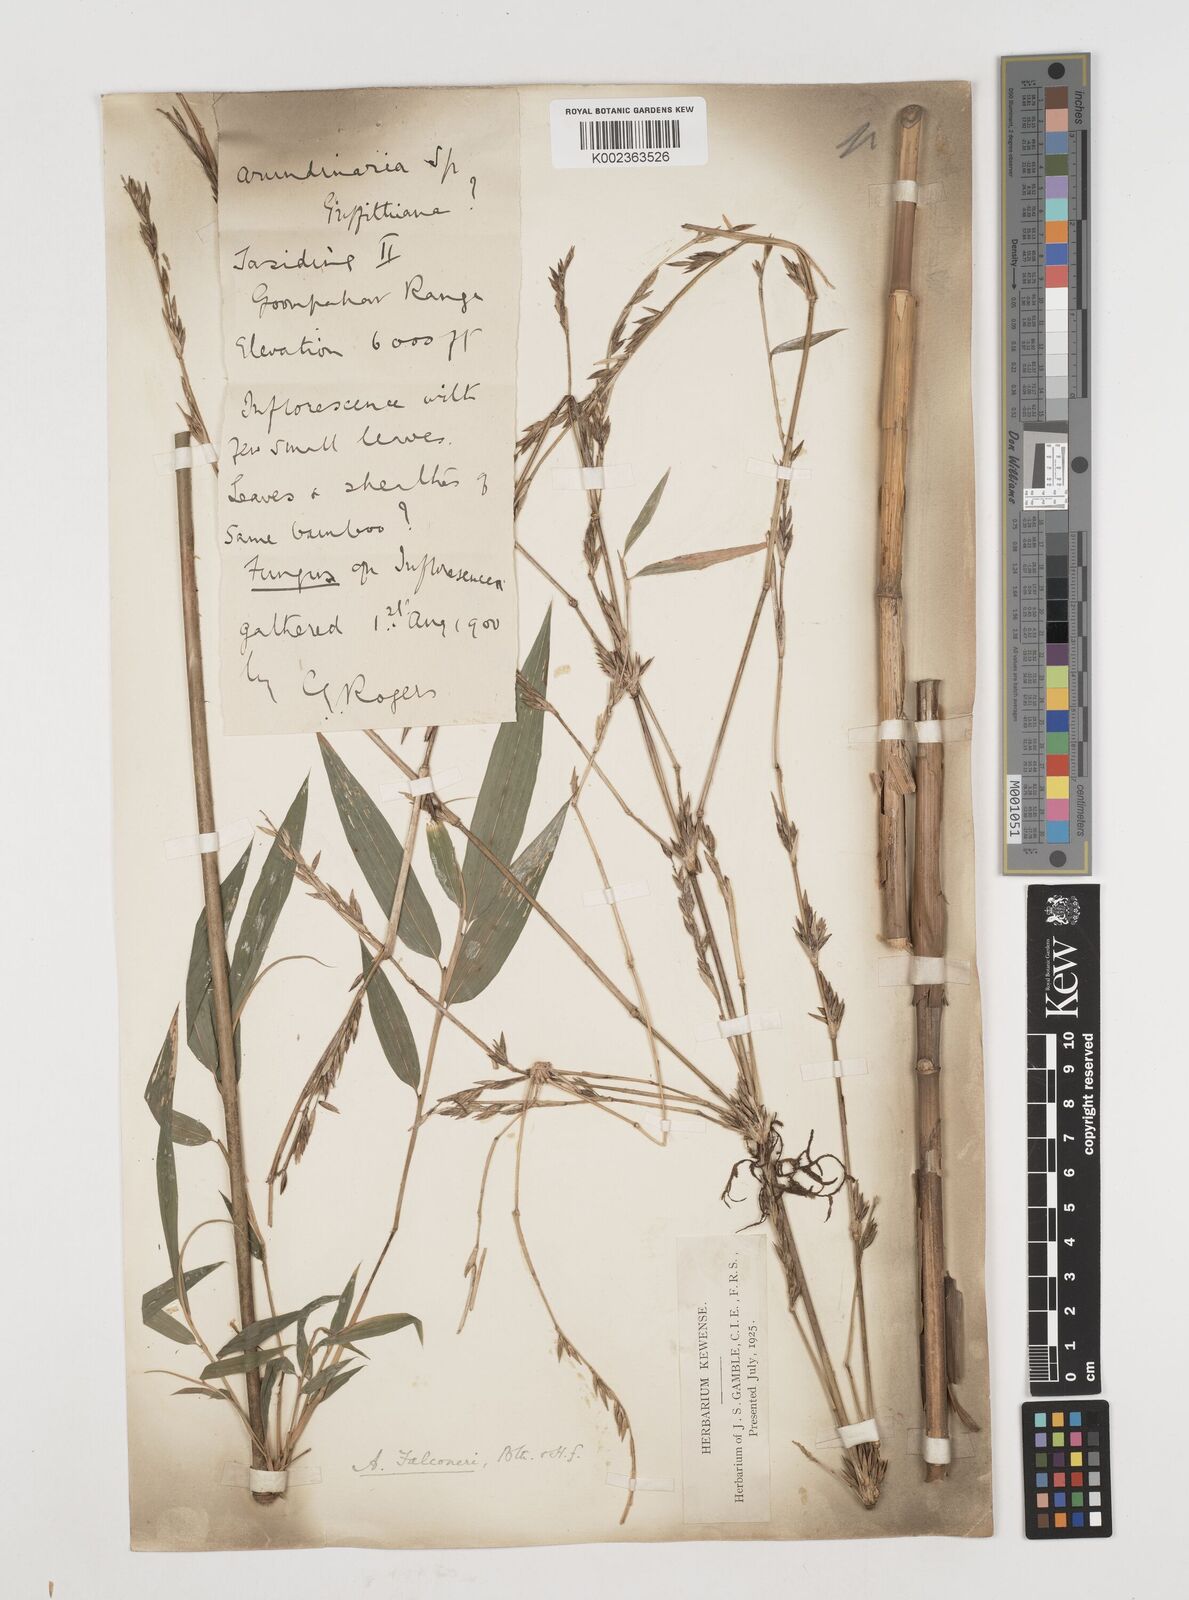 ROYAL BOTANIC GARDENS KEW
K002363526
Arundinaria Sp
Griffithiana ?
Tasiding II
Goompahar Range
Elevation 6000 ft
Inflorescence with
few small leaves.
Leaves & sheathes of
same bamboo ?
Fungus on Inflorescence
gathered 1st Aug 1900
by G Rogers
A. Falconeri, Bth. & H. f.
HERBARIUM KEWENSE.
Herbarium of J. S. GAMBLE, C.I.E., F.R.S.,
Presented July, 1925.
inches
centimetres
Don Williams
M001051
Royal Botanic Gardens
Kew
0 1 2 3 4 5 6 7 8 9 10
cm
copyright reserved